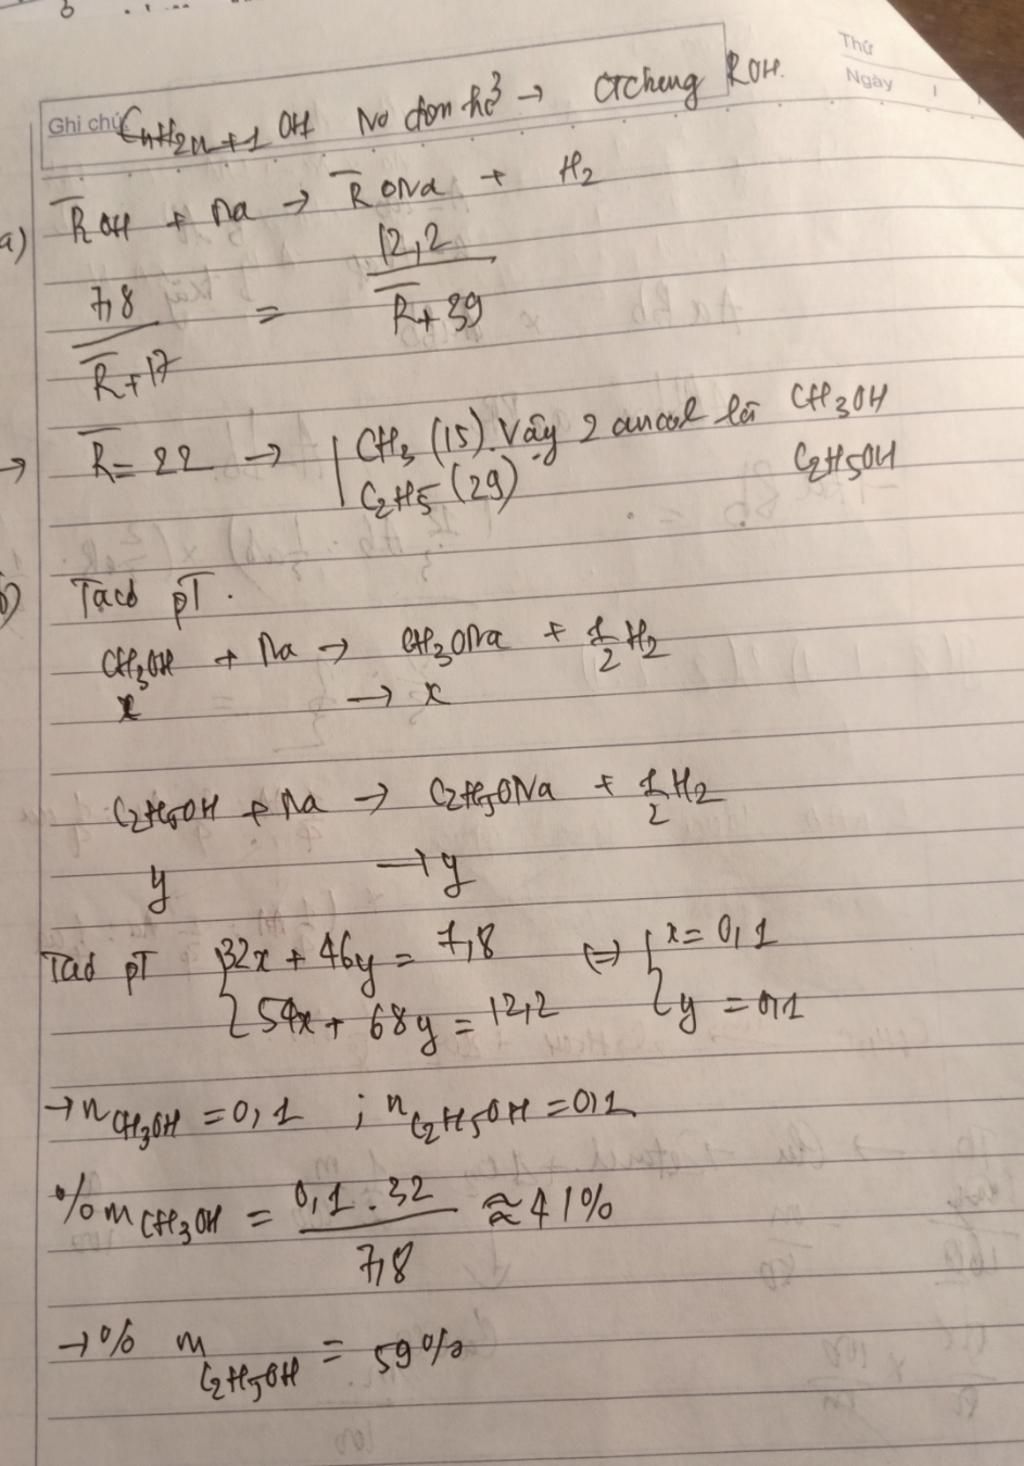 Thứ
Ngày
Ghi chú: CnH2n+1 OH No đơn hở → CTchung ROH.
a) R̅OH + Na → R̅ONa + H2
7,8 / R̅+17 = 12,2 / R̅+39
→ R̅ = 22 → | CH3 (15). Vậy 2 ancol là CH3OH
C2H5 (29) C2H5OH
b) Ta có pT.
CH3OH + Na → CH3ONa + 1/2 H2
x → x
C2H5OH + Na → C2H5ONa + 1/2 H2
y → y
Ta có pT { 32x + 46y = 7,8 (=) { x = 0,1
54x + 68y = 12,2 y = 0,1
→ n CH3OH = 0,1 ; n C2H5OH = 0,1
%m CH3OH = 0,1 . 32 / 7,8 ≈ 41%
→ % m C2H5OH = 59%